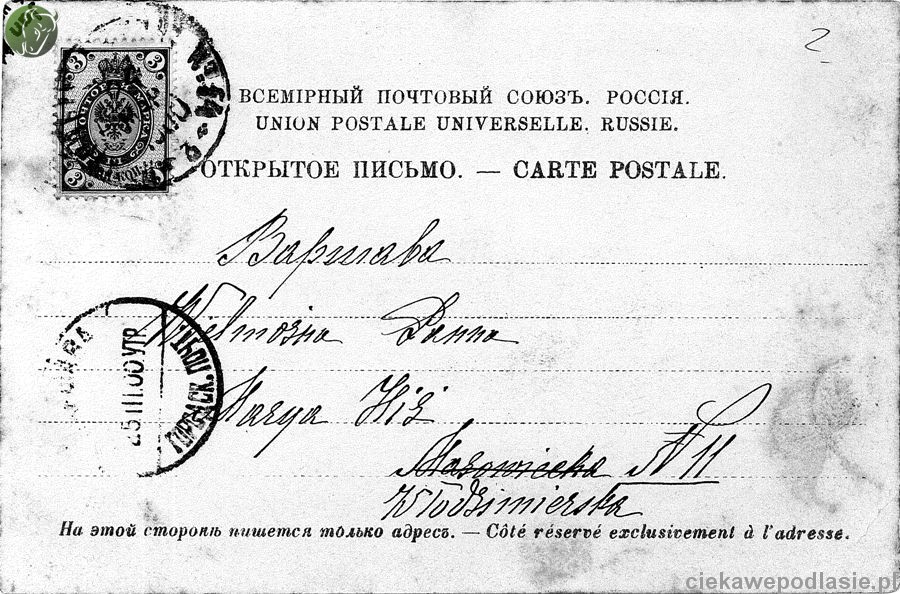 2
3 3
ВСЕМІРНЫЙ ПОЧТОВЫЙ СОЮЗЪ. РОССІЯ.
UNION POSTALE UNIVERSELLE. RUSSIE.
ОТКРЫТОЕ ПИСЬМО. — CARTE POSTALE.
Варшава
Wielmożna Panna
Marya Hiż
Mazowiecka N 11
Włodzimierska
25 III.00.УТР
ГОРОДСК. ПОЧТ
На этой сторонѣ пишется только адресъ. — Côté réservé exclusivement à l'adresse.
ciekawepodlasie.pl